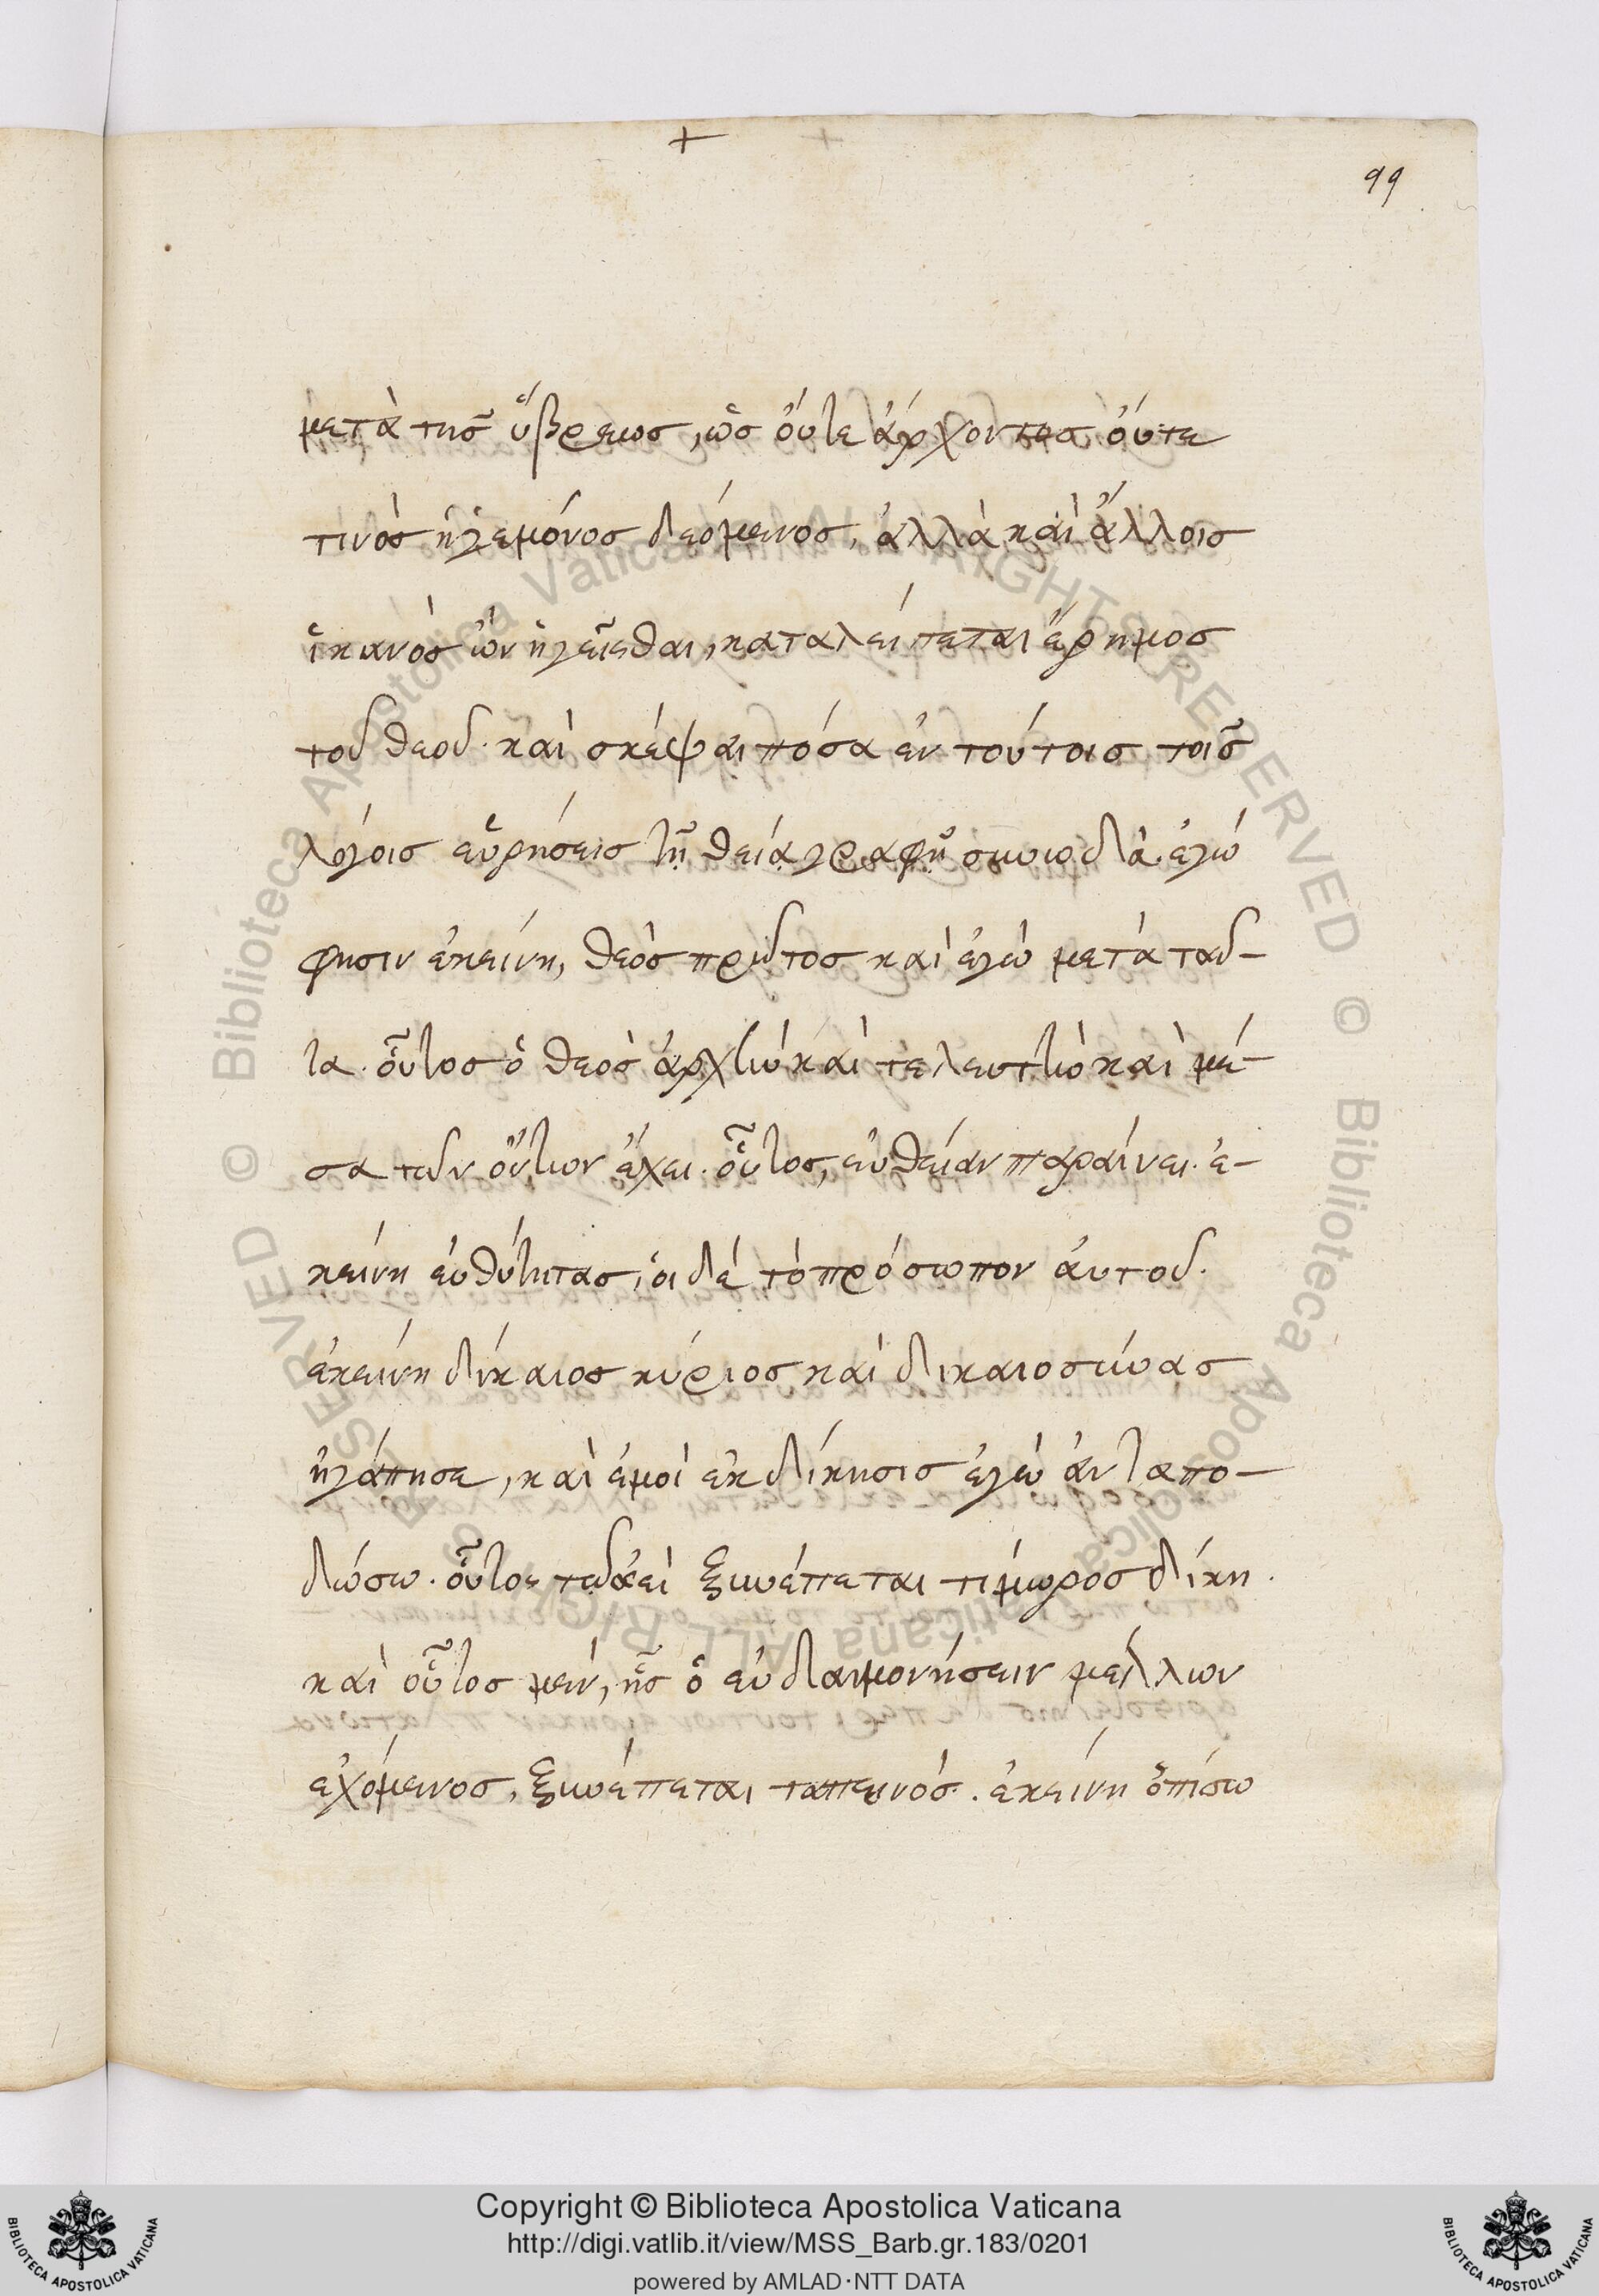 +
99
μετὰ τῆς ὕβρεως, ὡς οὔτε ἄρχοντος οὔτε
τινὸς ἡγεμόνος δεόμενος, ἀλλὰ καὶ ἄλλοις
ἱκανὸς ὢν ἡγεῖσθαι, καταλείπεται ἔρημος
τοῦ θεοῦ. καὶ σκέψαι πόσα ἐν τούτοις τοῖς
λόγοις εὑρήσεις τῆ θεία γραφῆ συνῳδά. ἐγώ
φησιν ἐκείνη, θεὸς πρῶτος καὶ ἐγὼ μετὰ ταῦ-
τα. οὗτος ὁ θεὸς ἀρχὴν καὶ τελευτὴν καὶ μέ-
σα τῶν ὄντων ἔχει. οὗτος, εὐθεῖαν παραίνει. ἐ-
κείνη εὐθύτητας, οἱ δὲ τὸ πρόσωπον αὐτοῦ.
ἐκείνη δίκαιος κύριος καὶ δικαιοσύνας
ἠγάπησε, καὶ ἐμοὶ ἐκδίκησις ἐγὼ ἀνταπο-
δώσω. οὗτος τῶ ἀεὶ ξυνέπεται τιμωρὸς δίκη.
καὶ οὗτος μὲν, ἧς ὁ εὐδαιμονήσειν μέλλων
ἐχόμενος, ξυνέπεται ταπεινός. ἐκείνη ὀπίσω
Copyright © Biblioteca Apostolica Vaticana
http://digi.vatlib.it/view/MSS_Barb.gr.183/0201
powered by AMLAD·NTT DATA